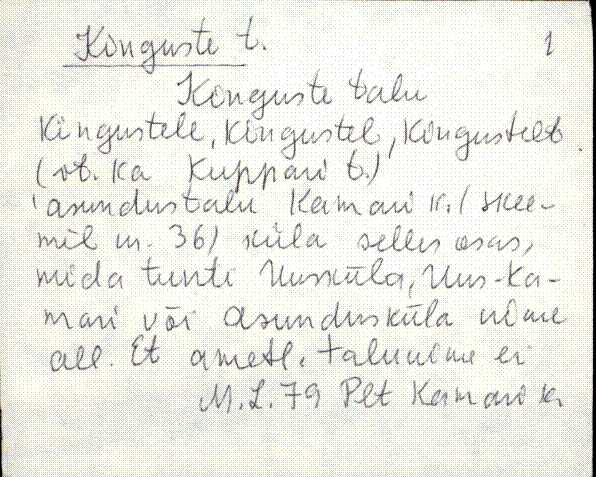 Kinguste t. 1
Kinguste talu
Kingustele, Kingustel, Kingustelt.
(vt. ka Kuppari t.)
asundustalu Kamari k. (skee-
mil nr. 36) küla selles osas,
mida tunti Uusküla, Uus-Ka-
mari või Asundusküla nime
all. Et ametl. talunime ei
M.L. 79 Plt Kamari k